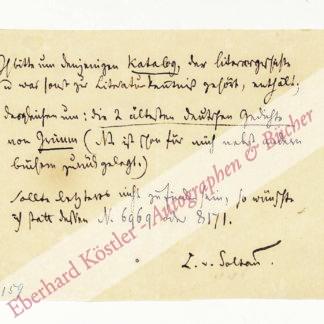 Ich bitte um denjenigen Katalog, der Literargeschichte
u was sonst zu Literaturkenntniß gehört, enthält;
desgleichen um: die 2 ältesten deutschen Gedichte
von Grimm (N° ist schon für mich nebst andern
büchern zurückgelegt.)
Sollte letzteres nicht zu finden sein, so wünschte
ich statt dessen N. 6969 oder 8171.
L. v. Soltau.
159
Eberhard Köstler - Autographen & Bücher